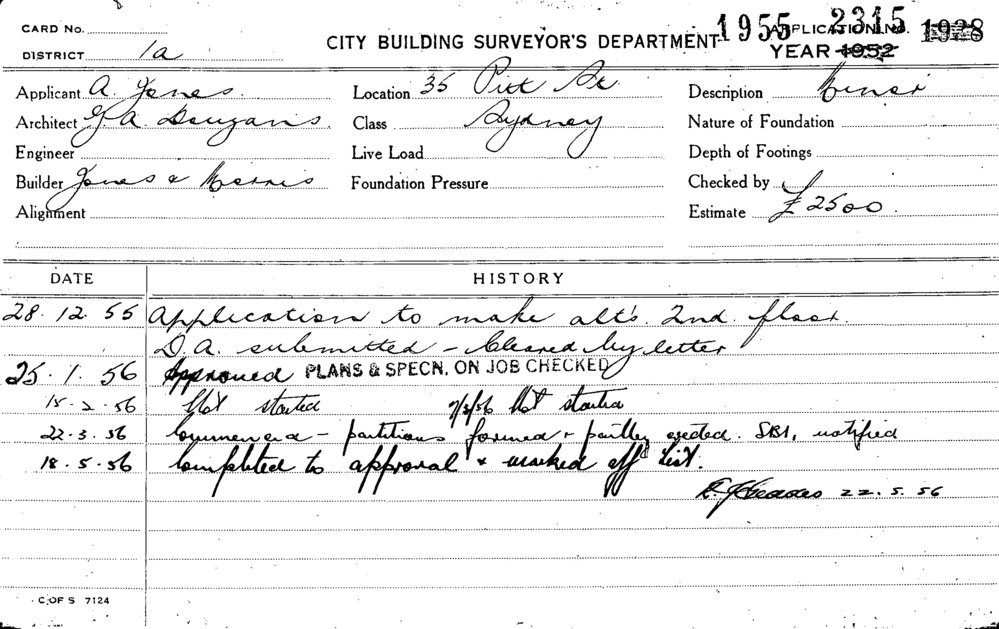 CARD No.
DISTRICT 1a
CITY BUILDING SURVEYOR'S DEPARTMENT
1955 2315 1928
APPLICATION No.
YEAR 1952
Applicant A. Jones.
Location 35 Pitt St.
Description Minor
Architect G. A.
Class Sydney
Nature of Foundation
Engineer
Live Load
Depth of Footings
Builder Jones & Morris
Foundation Pressure
Checked by
Alignment
Estimate £2500.
DATE HISTORY
28.12.55 Application to make alts. 2nd. floor.
D.A. submitted - Cleared by letter
25.1.56 Approved PLANS & SPECN. ON JOB CHECKED
15.2.56 Not started 7/3/56 Not started
22.3.56 Commenced - partitions formed & partly erected. SBI, notified
18.5.56 Completed to approval & marked off list.
22.5.56
C OF S 7124